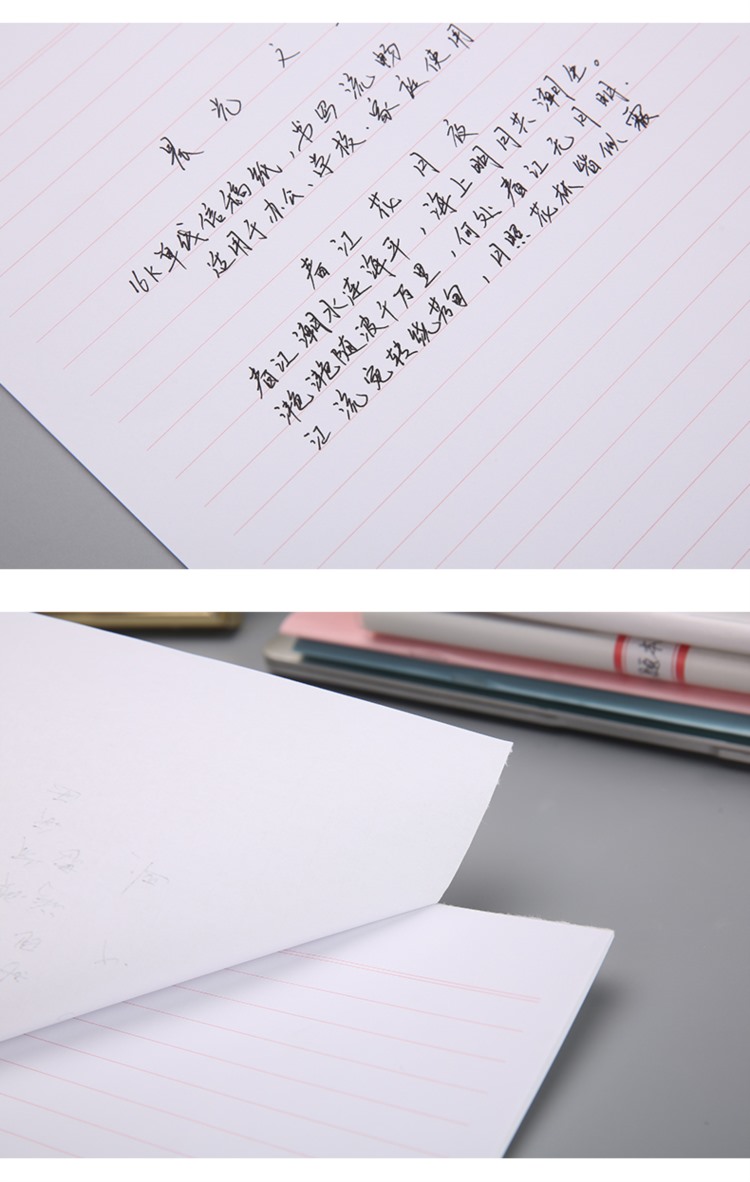 晨光文
16K单线信稿纸，书写流畅
适用于办公、学校、家庭使用
春江花月夜
春江潮水连海平，海上明月共潮生。
滟滟随波千万里，何处春江无月明.
江流宛转绕芳甸，月照花林皆似霰